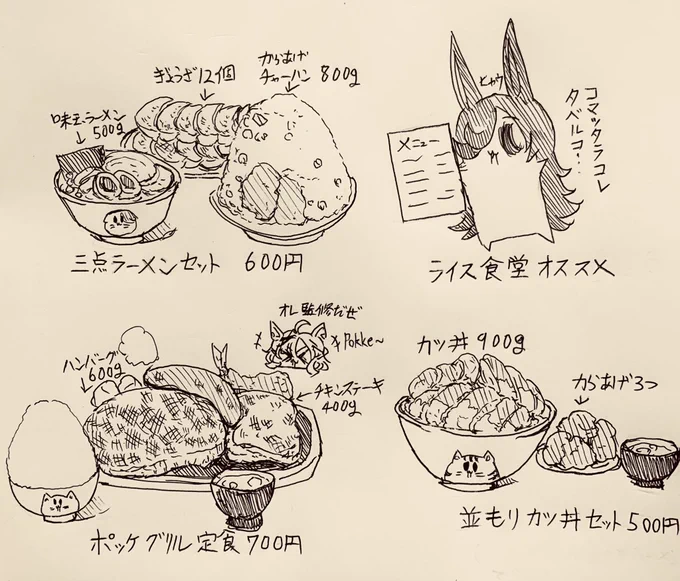 からあげ
チャーハン 800g
ぎょうざ12個
味玉ラーメン
500g
三点ラーメンセット 600円
ヒャウ
コマッタラコレ
タベルコ!
メニュー
ライス食堂オススメ
オレ監修だぜ
Pokke~
ハンバーグ
600g
チキンステーキ
400g
ポッケグリル定食700円
カツ丼 900g
からあげ3つ
並もりカツ丼セット500円